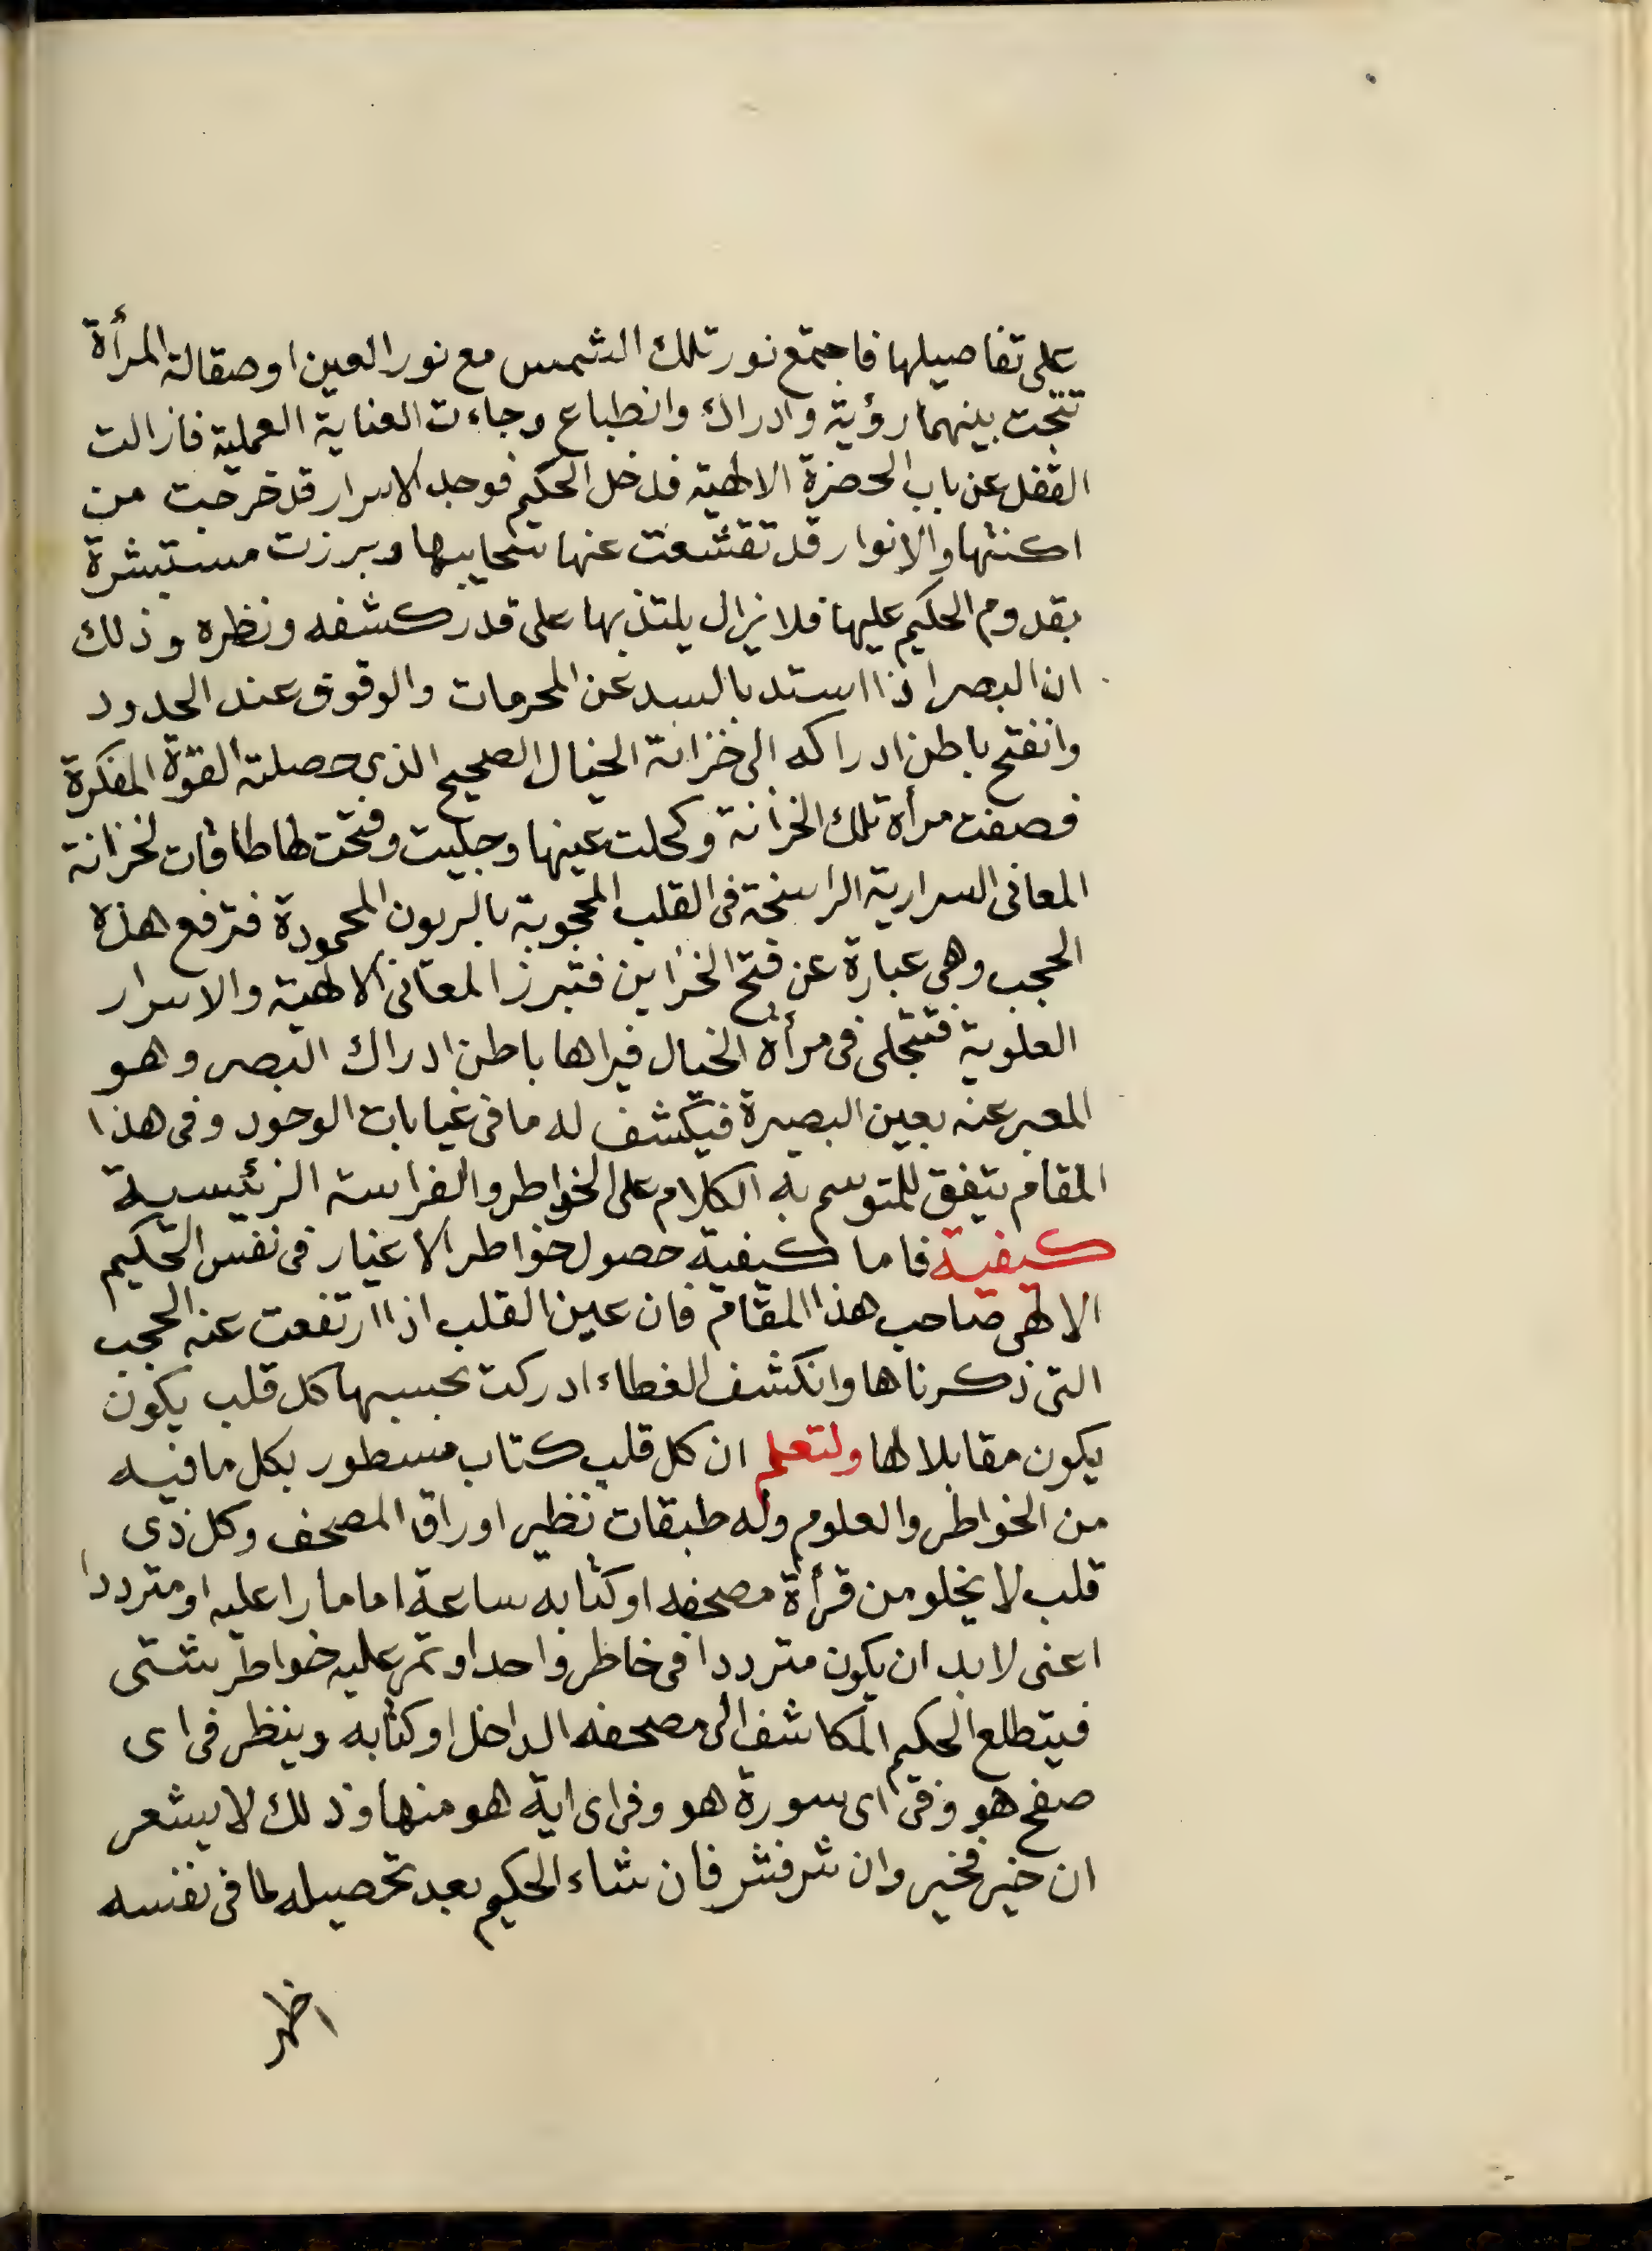 على تفاصيلها فاجتمع نور تلك الشمس مع نور العين او صقالة المرأة
نتجت بينهما رؤية وادراك وانطباع وجاءت العناية العملية فازالت
القفل عن باب الحضرة الالهية فدخل الحكيم فوجد الاسرار قد خرجت من
اكنتها والانوار قد تقشعت عنها سحايبها وبرزت مستبشرة
بقدوم الحكيم عليها فلا يزال يلتذ بها على قدر كشفه ونظره وذلك
ان البصر اذا استد بالسد عن المحرمات والوقوف عند الحدود
وانفتح باطن ادراكه الى خزانة الخيال الصحيح الذى حصلته القوة المفكرة
فصفت مرأة تلك الخزانة وكحلت عينها وجليت وفتحت لها طاقات لخزانة
المعانى السرارية الراسخة فى القلب المحجوبة بالريون المحمودة فترفع هذه
الحجب وهى عبارة عن فتح الخزاين فتبرز المعانى الالهية والاسرار
العلوية فتتجلى فى مرأة الخيال فيراها باطن ادراك البصر وهو
المعبر عنه بعين البصيرة فيكشف له ما فى غيابات الوجود وفى هذا
المقام يتفق للمتوسم به الكلام على الخواطر والفراسة الرئيسية
كيفية فاما كيفية حصول خواطر الاغيار فى نفس الحكيم
الالهى صاحب هذا المقام فان عين القلب اذا ارتفعت عنه الحجب
التى ذكرناها وانكشف الغطاء ادركت بحسبها كل قلب يكون
يكون مقابلا لها ولتعلم ان كل قلب كتاب مسطور بكل ما فيه
من الخواطر والعلوم وله طبقات نظير اوراق المصحف وكل ذى
قلب لا يخلو من قرأة مصحفه او كتابه ساعة اما مارا عليه او مترددا
اعنى لا بد ان يكون مترددا فى خاطر واحد او تمر عليه خواطر شتى
فيتطلع الحكيم المكاشف الى مصحفه الداخل او كتابه وينظر فى اى
صفح هو وفى اى سورة هو وفى اى اية هو منها وذلك لا يشعر
ان خير فخير وان شر فشر فان شاء الحكيم بعد تحصيله لما فى نفسه
اظهر